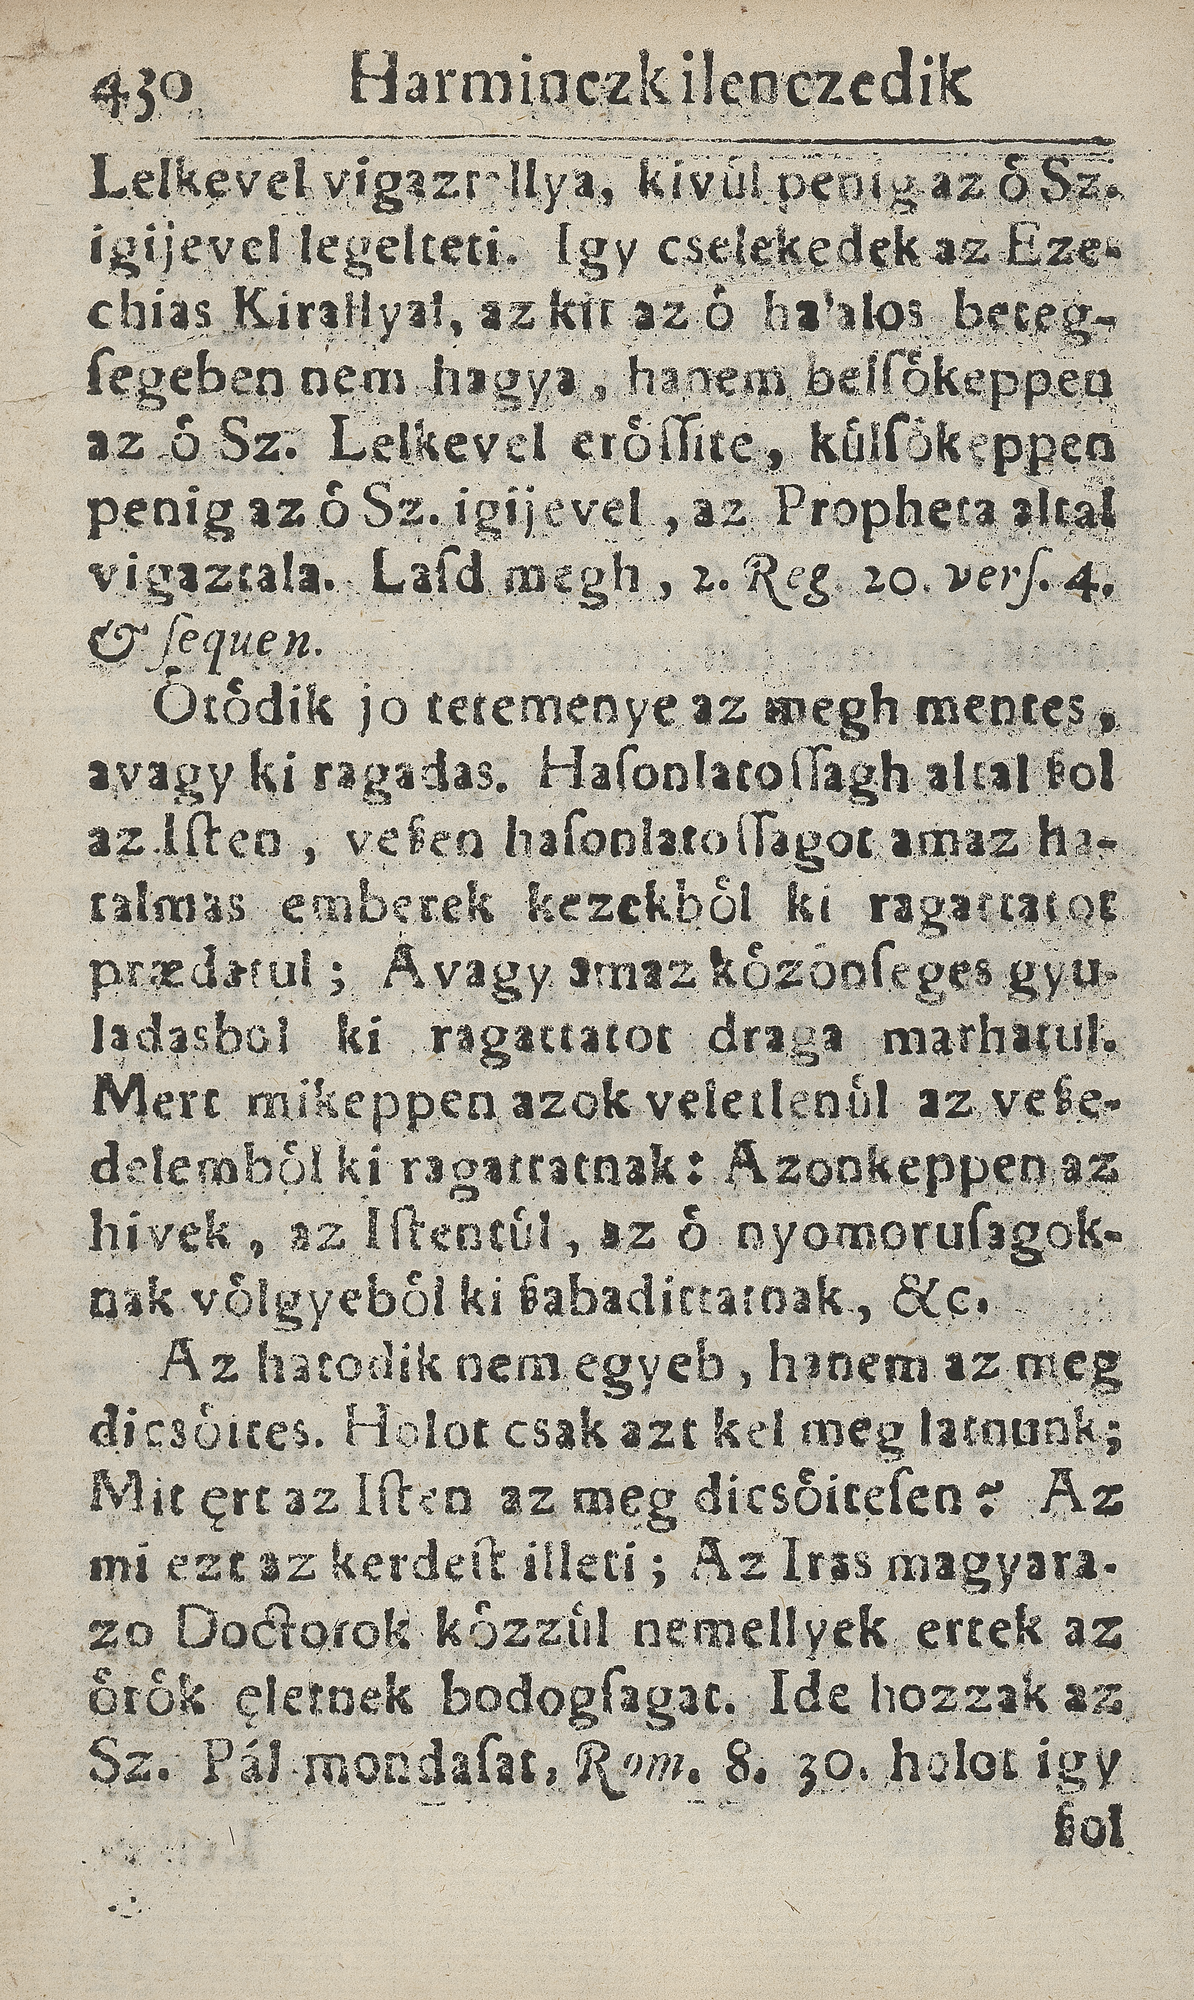 430 Harminczkilenczedik
Lelkevel vigaztallya, kivúl penig az ó Sz.
igijevel legelteti. Igy cselekedek az Eze-
chias Kirallyal, az kit az ó halalos beteg-
ſegeben nem hagya, hanem belſókeppen
az ó Sz. Lelkevel eróſſite, kúlſókeppen
penig az ó Sz. igijevel, az Propheta altal
vigaztala. Laſd megh, 2. Reg. 20. verſ. 4.
& ſequen.
Ótódik jo tetemenye az megh mentes,
avagy ki ragadas. Haſonlatoſſagh altal ßol
az Iſten, veßen haſonlatoſſagot amaz ha-
talmas emberek kezekból ki ragattatot
prædatul; Avagy amaz kózónſeges gyu-
ladasbol ki ragattatot draga marhatul.
Mert mikeppen azok veletlenúl az veße-
delemból ki ragattatnak: Azonkeppen az
hivek, az Iſtentúl, az ó nyomoruſagok-
nak vólgyeból ki ßabadittatnak, &c.
Az hatodik nem egyeb, hanem az meg
dicsóites. Holot csak azt kel meg latnunk;
Mit ęrt az Iſten az meg dicsóiteſen? Az
mi ezt az kerdeſt illeti; Az Iras magyara-
zo Doctorok kózzúl nemellyek ertek az
órók ęletnek bodogſagat. Ide hozzak az
Sz. Pál mondaſat, Rom. 8. 30. holot igy
ßol